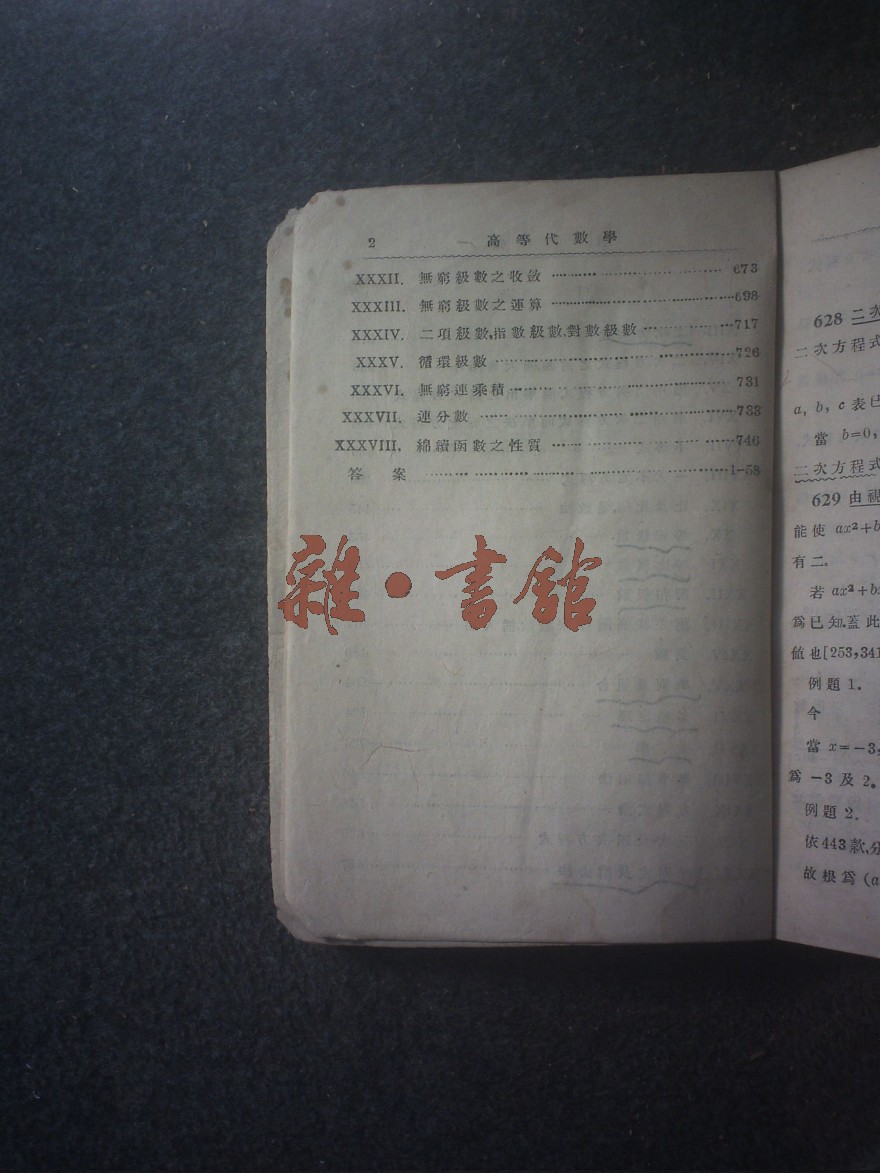 2 高等代數學
XXXII. 無窮級數之收斂 673
XXXIII. 無窮級數之運算 698
XXXIV. 二項級數,指數級數,對數級數 717
XXXV. 循環級數 726
XXXVI. 無窮連乘積 731
XXXVII. 連分數 733
XXXVIII. 綿續函數之性質 746
答案 1-58
雜·書館
628 二次
二次方程式
a, b, c 表已
當 b=0,
二次方程式
629 由視
能使 ax²+b
有二.
若 ax²+bx
爲已知.蓋此
値也[253,341
例題 1.
今
當 x=−3,
爲 −3 及 2。
例題 2.
依443款,分
故根爲 (a